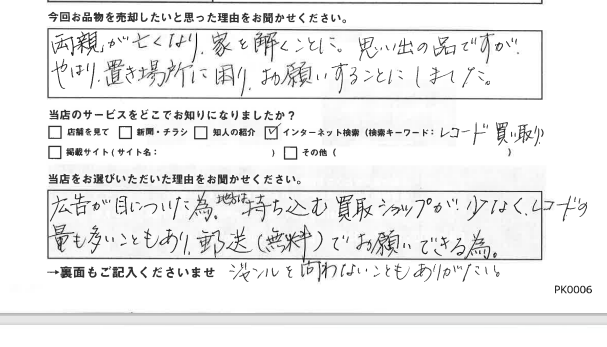 今回お品物を売却したいと思った理由をお聞かせください。
両親が亡くなり、家を解くことに。思い出の品ですが、
やはり、置き場所に困り、お願いすることにしました。
当店のサービスをどこでお知りになりましたか？
店舗を見て 新聞・チラシ 知人の紹介 インターネット検索（検索キーワード： レコード 買い取り）
掲載サイト（サイト名： ） その他（ ）
当店をお選びいただいた理由をお聞かせください。
広告が目についた為。地方は持ち込む買取ショップが少なく、レコードの
量も多いこともあり、郵送（無料）でお願いできる為。
→裏面もご記入くださいませ ジャンルを問わないこともありがたい。
PK0006